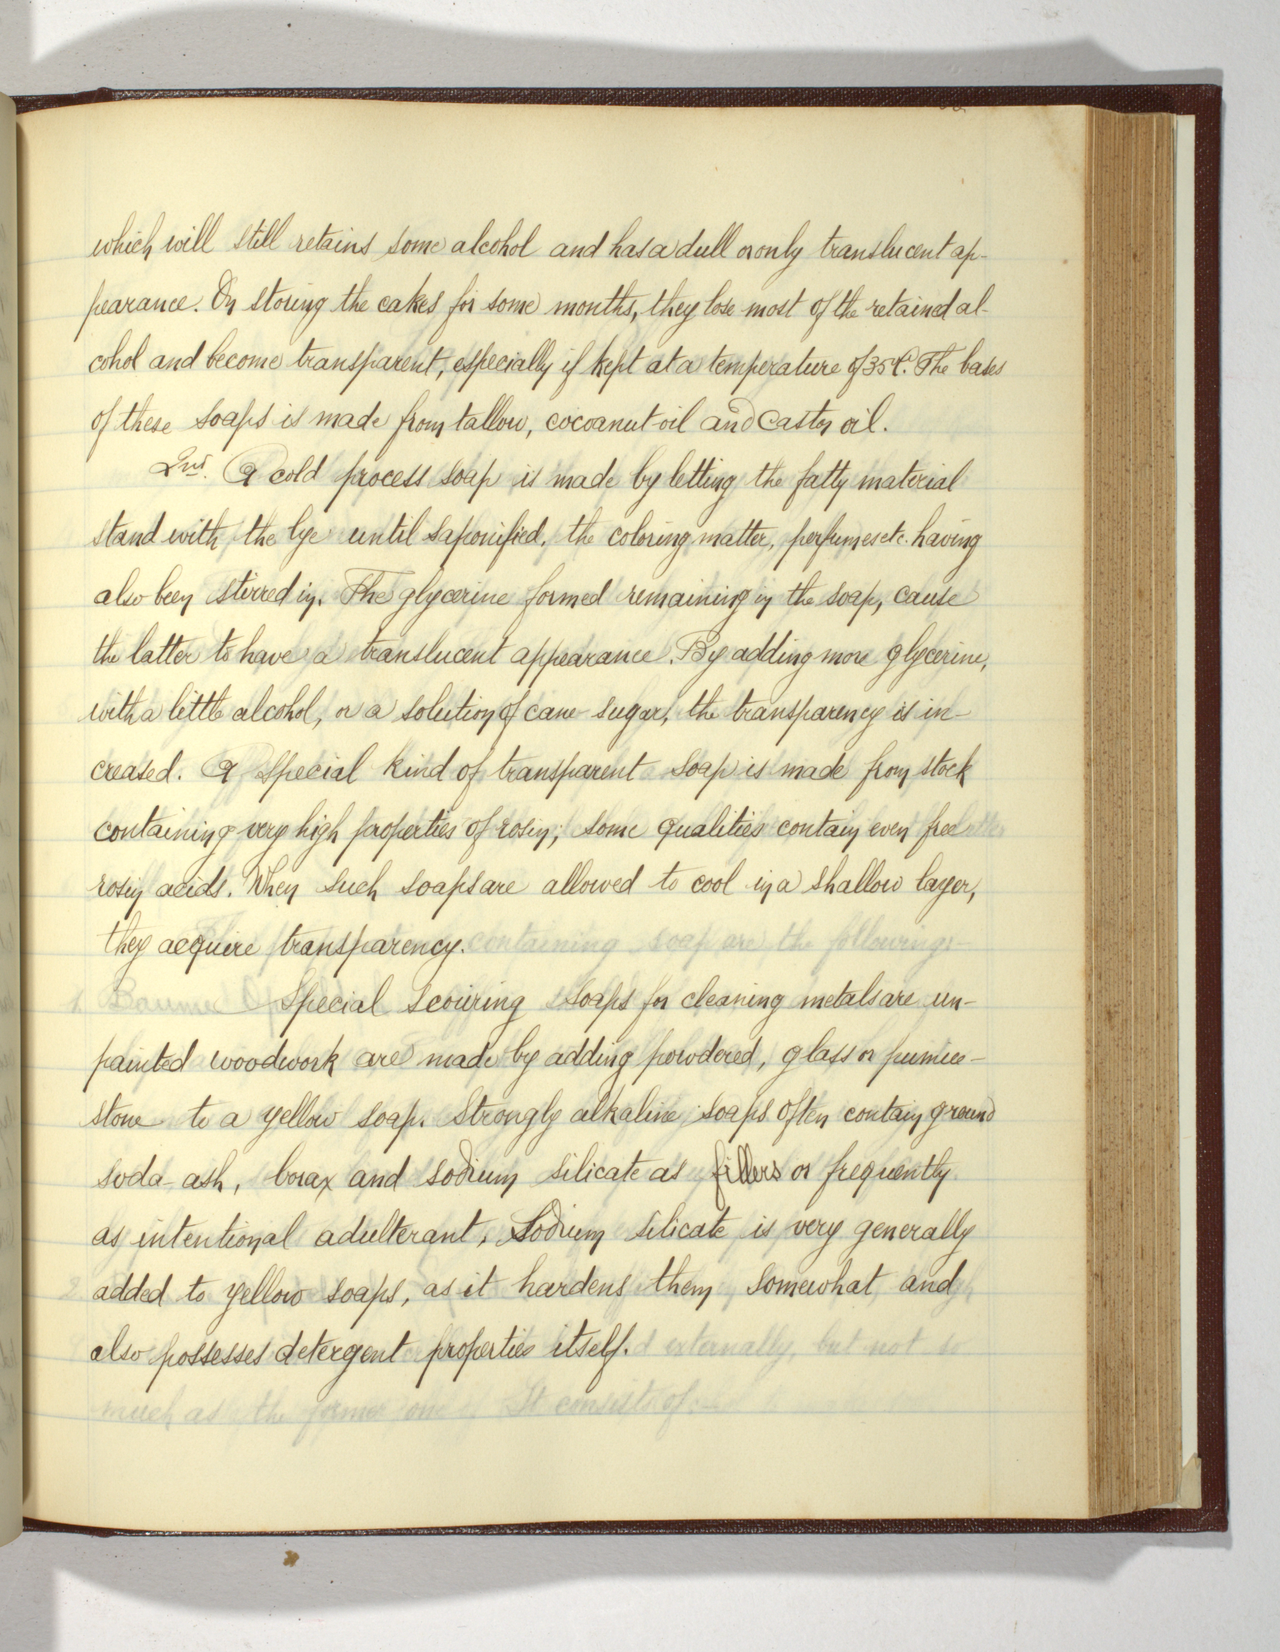 which will still retains some alcohol and has a dull or only translucent ap-
pearance. On storing the cakes for some months, they lose most of the retained al-
cohol and become transparent, especially if kept at a temperature of 35°C. The bases
of these soaps is made from tallow, cocoanut-oil and castor oil.
2nd. A cold process soap is made by letting the fatty material
stand with the lye until saponified, the coloring matter, perfumes etc. having
also been stirred in. The glycerine formed remaining in the soap, cause
the latter to have a translucent appearance. By adding more glycerine,
with a little alcohol, or a solution of cane sugar, the transparency is in-
creased. A special kind of transparent soap is made from stock
containing very high properties of rosin; some qualities contain even free
rosin acids. When such soaps are allowed to cool in a shallow layer,
they acquire transparency.
Special scouring soaps for cleaning metals are un-
painted woodwork are made by adding powdered, glass or pumice-
stone to a yellow soap. Strongly alkaline soaps often contain ground
soda-ash, borax and sodium silicate as fillers or frequently
as intentional adulterant. Sodium silicate is very generally
added to yellow soaps, as it hardens them somewhat and
also possesses detergent properties itself.